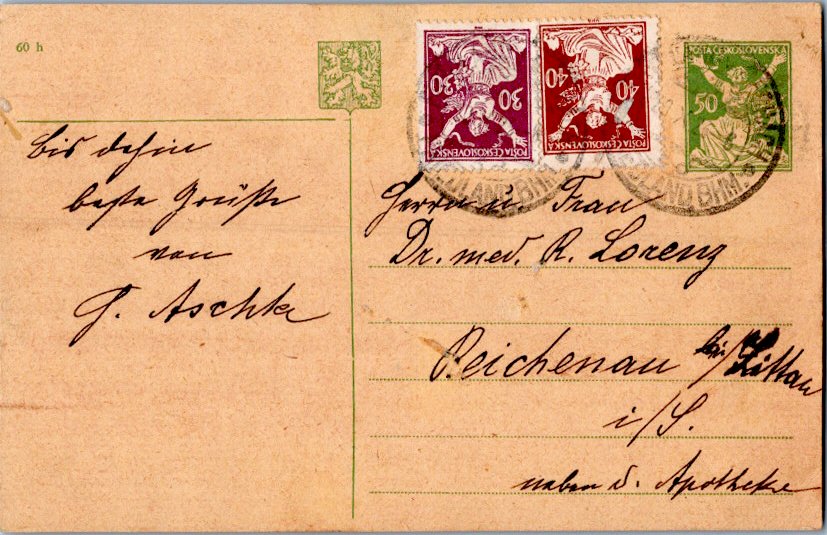 60 h
POSTA ČESKOSLOVENSKÁ
30 30
POSTA ČESKOSLOVENSKÁ
40 40
POSTA ČESKOSLOVENSKÁ
50
LAND BHM.
LAND BHM.
Bis dahin
beste Grüße
von
G. Aschke
Herrn u. Frau
Dr. med. R. Lorenz
Reichenau bei/Zittau
i/S.
neben d. Apotheke